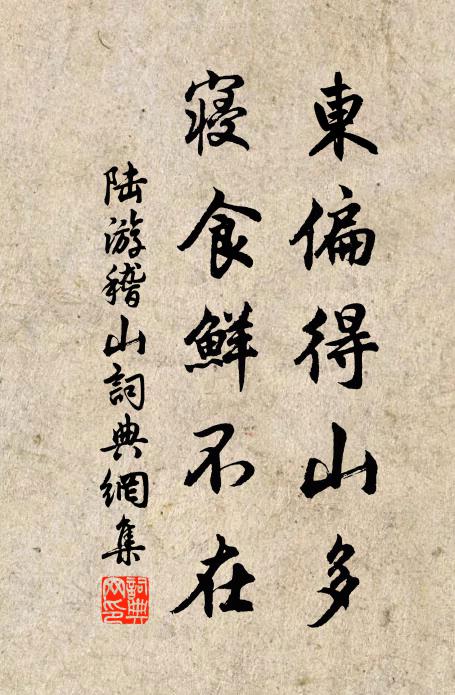 東偏得山多
寢食鮮不在
陸游稽山詞典網集
詞典網印